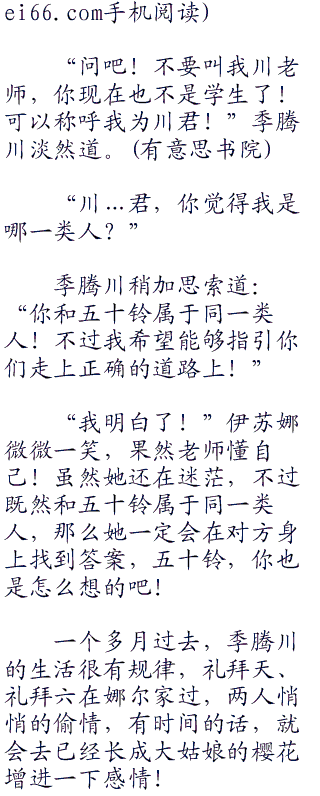 ei66.com手机阅读)
“问吧！不要叫我川老
师，你现在也不是学生了！
可以称呼我为川君！”季腾
川淡然道。(有意思书院)
“川…君，你觉得我是
哪一类人？”
季腾川稍加思索道：
“你和五十铃属于同一类
人！不过我希望能够指引你
们走上正确的道路上！”
“我明白了！”伊苏娜
微微一笑，果然老师懂自
己！虽然她还在迷茫，不过
既然和五十铃属于同一类
人，那么她一定会在对方身
上找到答案，五十铃，你也
是怎么想的吧！
一个多月过去，季腾川
的生活很有规律，礼拜天、
礼拜六在娜尔家过，两人悄
悄的偷情，有时间的话，就
会去已经长成大姑娘的樱花
增进一下感情！